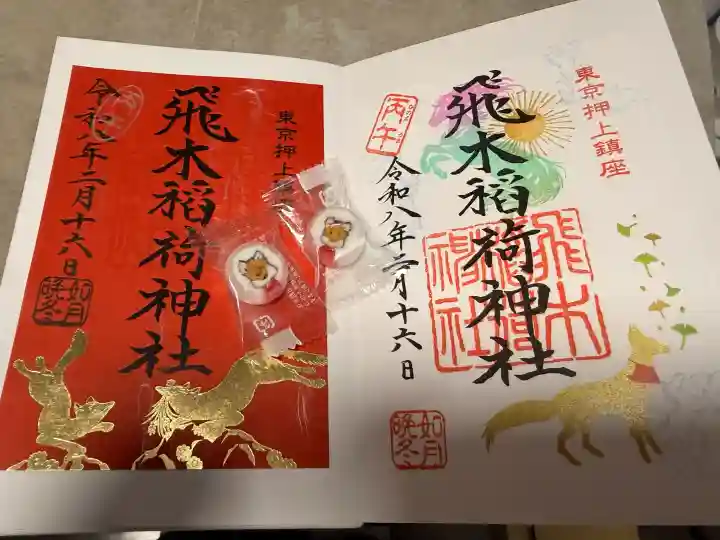 東京押上鎮座
丙午
飛木稲荷神社
令和八年二月十六日
飛木稲荷神社
如月
晩冬
東京押上鎮
飛木稲荷神社
令和八年二月十六日
如月
晩冬